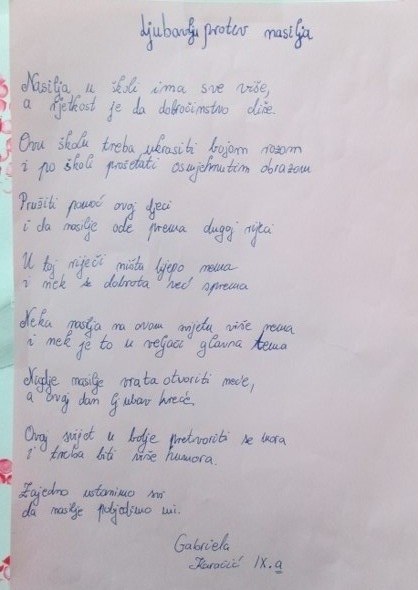 Ljubavlju protiv nasilja
Nasilja u školi ima sve više,
a rjetkost je da dobročinstvo diše.
Ovu školu treba ukrasiti bojom rozom
i po školi prošetati osmjehnutim obrazom
Pružiti pomoć ovoj djeci
i da nasilje ode prema dugoj rijeci
U toj riječi ništa lijepo nema
i nek se dobrota već sprema
Neka nasilja na ovom svijetu više nema
i nek je to u veljači glavna tema
Nigdje nasilje vrata otvoriti neće,
a ovaj dan ljubav kreće.
Ovaj svijet u bolje pretvoriti se mora
i treba biti više humora.
Zajedno ustanimo svi
da nasilje pobjedimo mi.
Gabriela
Karačić IX.a